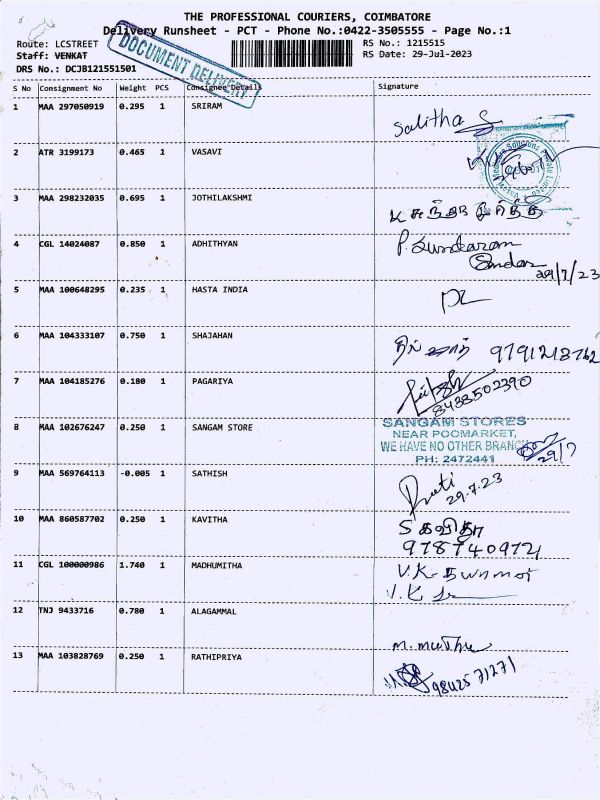 THE PROFESSIONAL COURIERS, COIMBATORE
Delivery Runsheet - PCT - Phone No.:0422-3505555 - Page No.:1
Route: LCSTREET
RS No.: 1215515
Staff: VENKAT
RS Date: 29-Jul-2023
DRS No.: DCJB121551501
DOCUMENT DELIVERY
S No Consignment No Weight PCS Consignee Details Signature
1 MAA 297050919 0.295 1 SRIRAM
Salitha
2 ATR 3199173 0.465 1 VASAVI
3 MAA 298232035 0.695 1 JOTHILAKSHMI
4 CGL 14024087 0.850 1 ADHITHYAN P. Sundaram
29/7/23
5 MAA 100648295 0.235 1 HASTA INDIA
6 MAA 104333107 0.750 1 SHAJAHAN
9791218762
7 MAA 104185276 0.180 1 PAGARIYA
8438502390
8 MAA 102676247 0.250 1 SANGAM STORE SANGAM STORES
NEAR POOMARKET,
WE HAVE NO OTHER BRANCH
29/7
PH: 2472441
9 MAA 569764113 -0.005 1 SATHISH
29.7.23
10 MAA 860587702 0.250 1 KAVITHA S கவிதா
9787740972
11 CGL 100000986 1.740 1 MADHUMITHA V.K-
12 TNJ 9433716 0.780 1 ALAGAMMAL
M. Muthu
13 MAA 103828769 0.250 1 RATHIPRIYA
9842571271